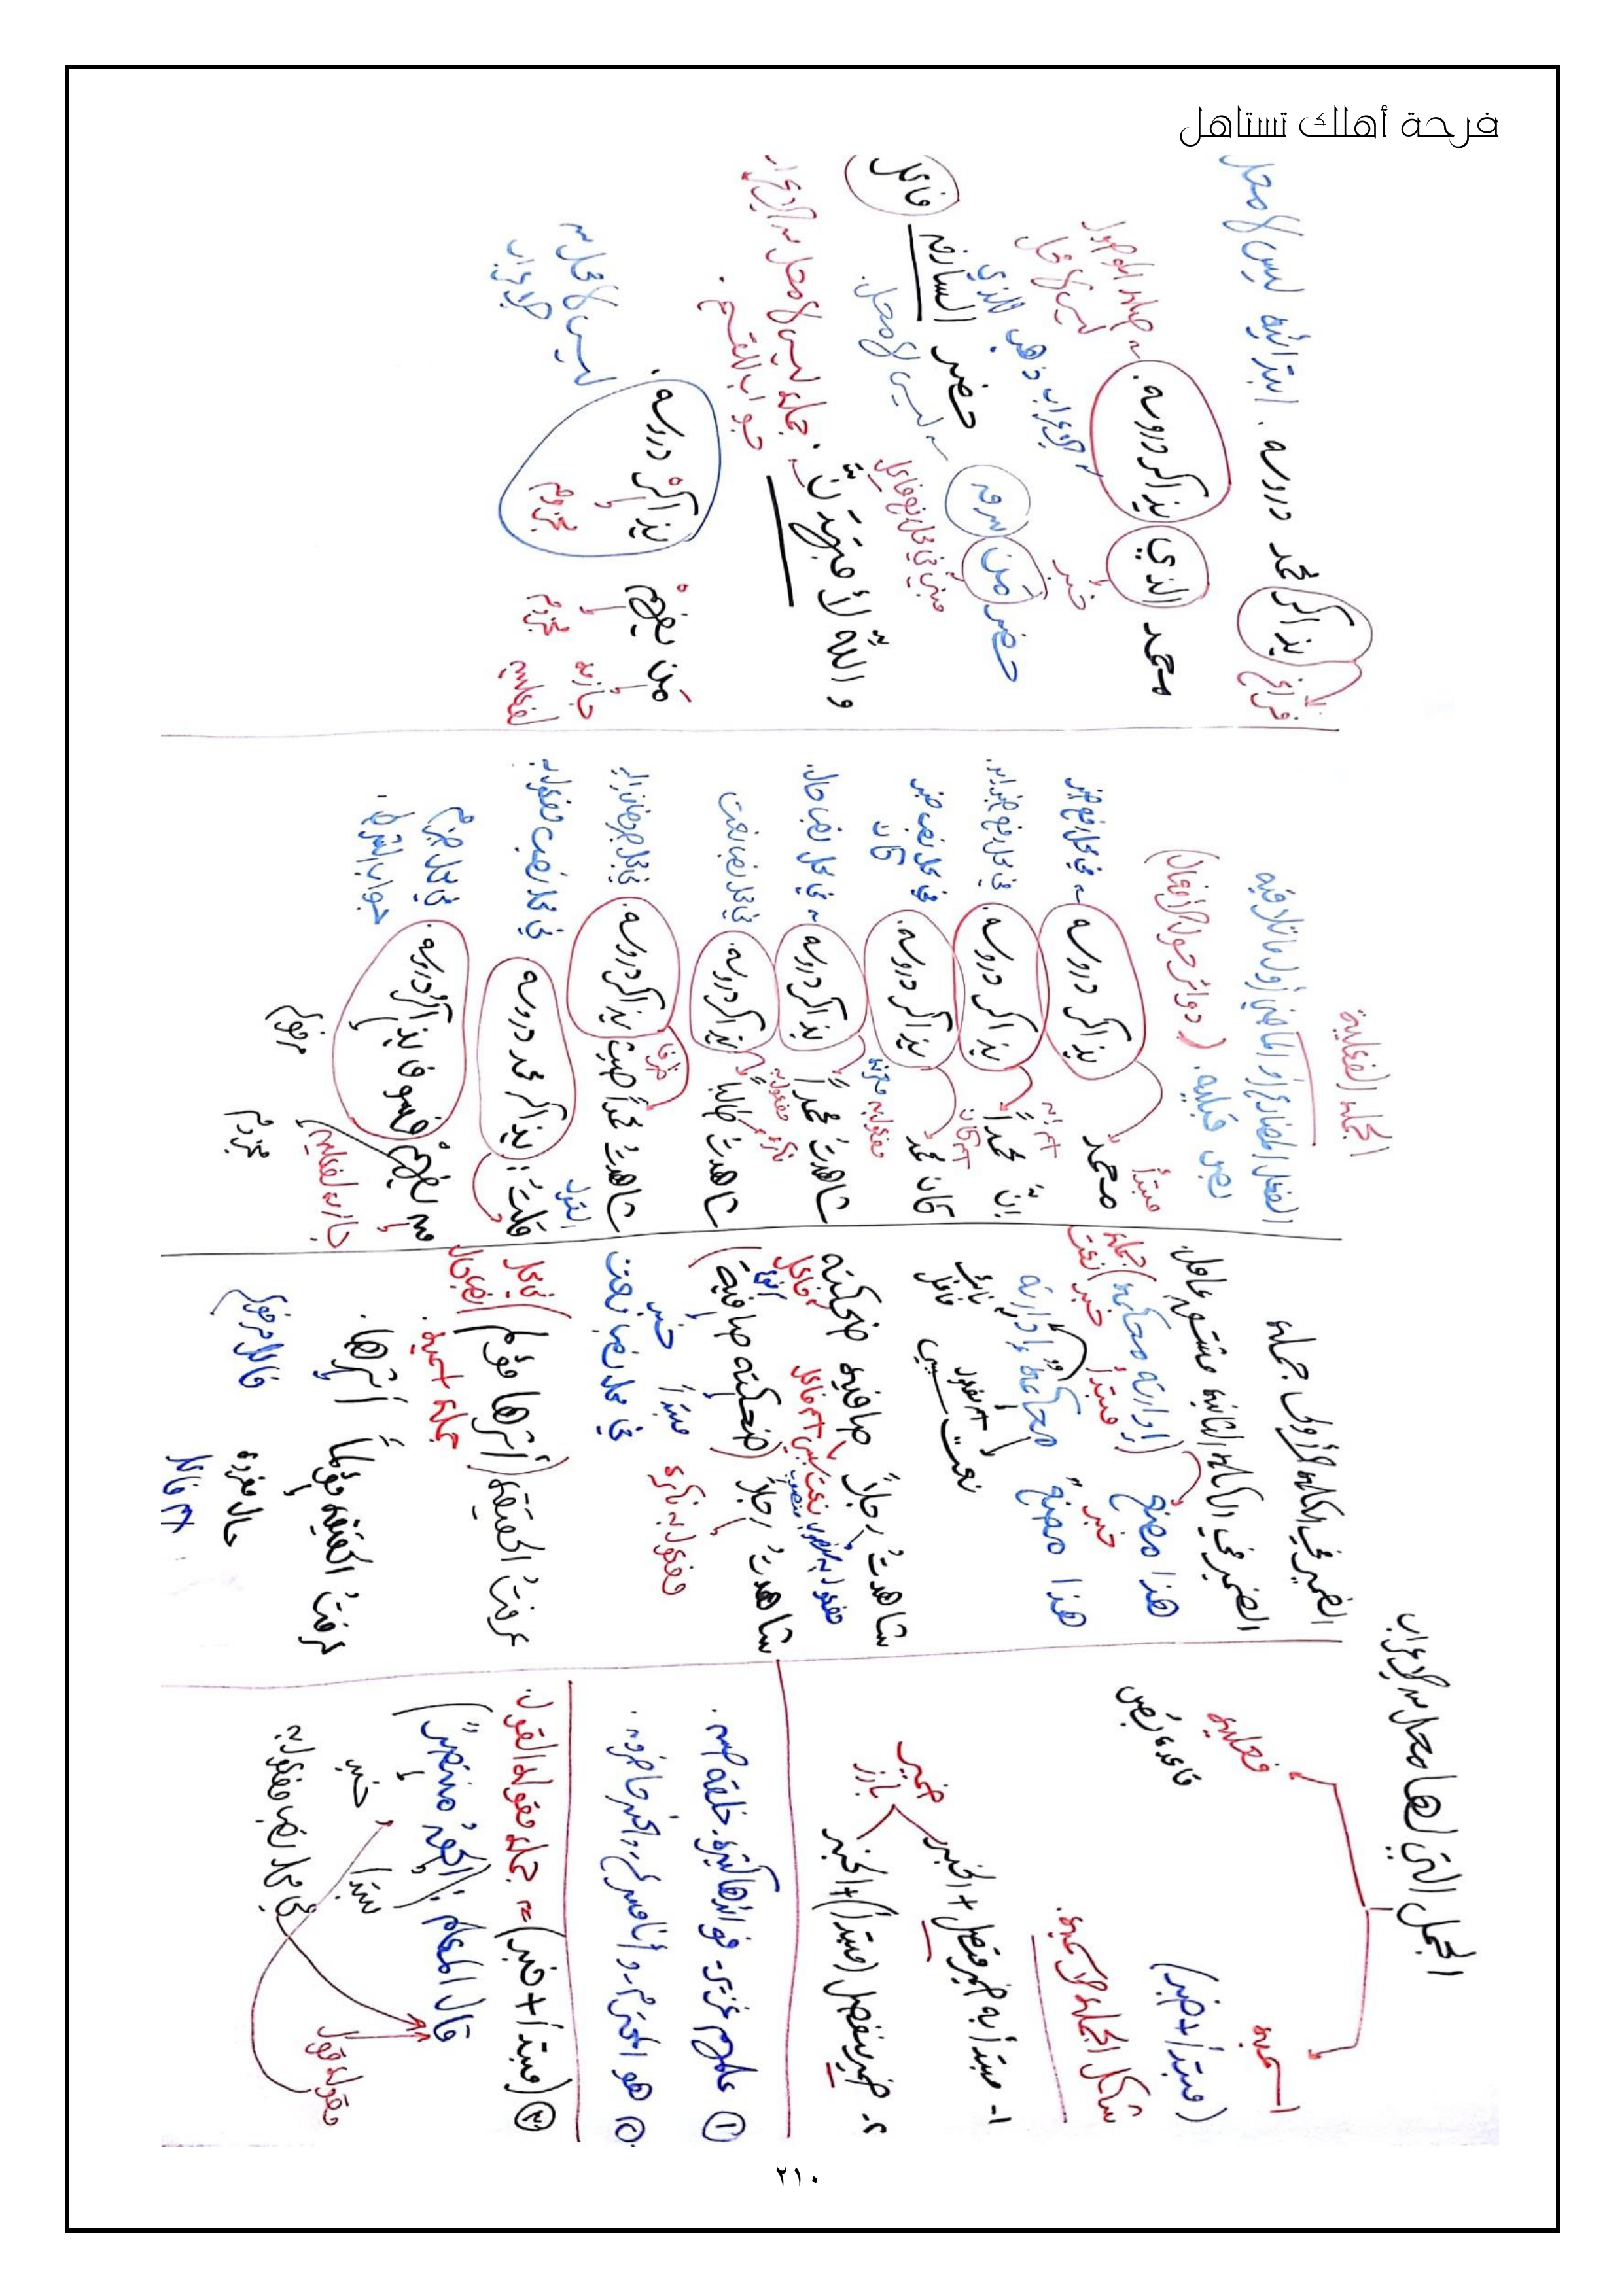 فرحة أهلك تستاهل
الجمل التي لها محل من الإعراب
اسمية
(مبتدأ + خبر)
شكل الجملة الاسمية
فعلية
قاعدة بص
١- مبتدأ به ضمير متصل + الخبر
٢- ضمير منفصل (مبتدأ) + الخبر
ضمير بارز
① علمهم غزير - فوائدها كثيرة - خلقه حسن.
② هو المحترم - وأنا مسرع - والخير حاضرون.
③ (مبتدأ + خبر) = جملة مقول القول.
قال المعلم: (الجو منتصر)
مبتدأ خبر
في محل نصب مفعول به
مقول قول
الضمير في الكلمة الأولى جملة
الضمير في الكلمة الثانية مشتق عامل.
هذا مصنع (إدارته محكمة) جملة
خبر مبتدأ خبر نعت
هذا مصنع محكمة إدارته
نعت سببي اسم مفعول نائب فاعل
شاهدت رجلاً صافية ضحكته
مفعول به منصوب نعت سببي اسم فاعل فاعل
شاهدت رجلاً (ضحكته صافية)
مفعول به نكرة مبتدأ خبر
في محل نصب نعت
عرفت الحقيقة (أثرها مؤلم)
جملة اسمية
عرفت الحقيقة مؤلماً أثرها.
حال مفردة فاعل مرفوع
اسم فاعل
الجملة الفعلية
الفعل المضارع أو الماضي أول ما تلاقيه
بص قبليه. (دوائر حول الأفعال)
محمد يذاكر دروسه. في محل رفع خبر
مبتدأ
إن محمداً يذاكر دروسه. في محل رفع خبر إن.
اسم إن
كان محمد يذاكر دروسه. في محل نصب خبر كان
اسم كان
شاهدت محمداً يذاكر دروسه. في محل نصب حال.
مفعول به معرفة
شاهدت طالباً يذاكر دروسه. في محل نصب نعت
مفعول به نكرة
شاهدت محمداً حيث يذاكر دروسه. في محل جر مضاف إليه
ظرف
قلت: يذاكر محمد دروسه في محل نصب مفعول به
القول
من يفهم فسوف يذاكر دروسه. في محل جزم جواب الشرط.
جازمة لفعلين
مجزوم مرفوع
يذاكر محمد دروسه. ابتدائية ليس لها محل
فراغ
محمد الذي يذاكر دروسه. صلة الموصول ليس لها محل
خبر
من الإعراب ذهب للذي
حضر من سرق حضر السارق فاعل
ليس لها محل.
مبني في محل رفع فاعل
والله لأجتهدن جملة ليس لها محل من الإعراب
جواب القسم.
من يفهم يذاكر دروسه. ليس لها محل من الإعراب
جازمة لفعلين مجزوم مجزوم
٢١٠